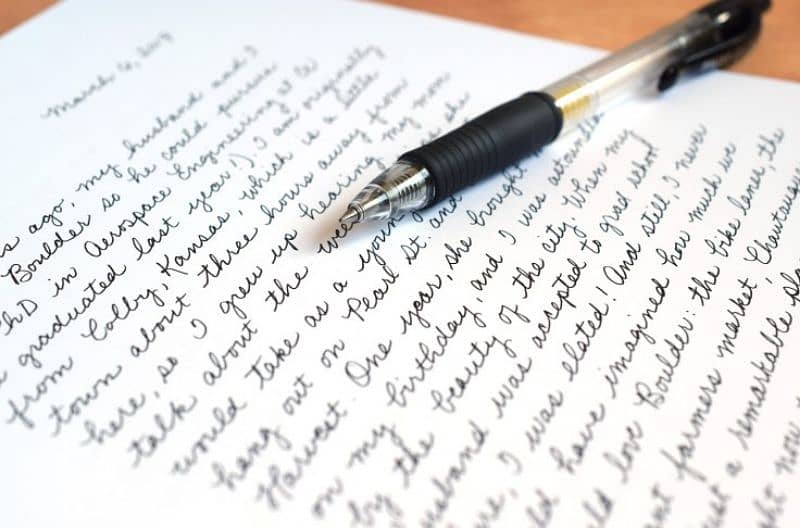 March 6,
s ago, my husband and I
Boulder so he could pursue
hD in Aerospace Engineering at CU
graduated last year!). I am originally
from Colby, Kansas, which is a little
town about three hours away from
here, so I grew up hearing my mom
talk about the wee she
would take as a young
hang out on Pearl St. and
Harvest. One year, she brought
on my birthday, and I was astounde
by the beauty of the city. When my
usband was accepted to grad school
re, I was elated! And still, I never
ld have imagined how much we
ld love Boulder: the bike lanes, the
nt farmers market, Chautauqu
st a remarkable pla
ght now